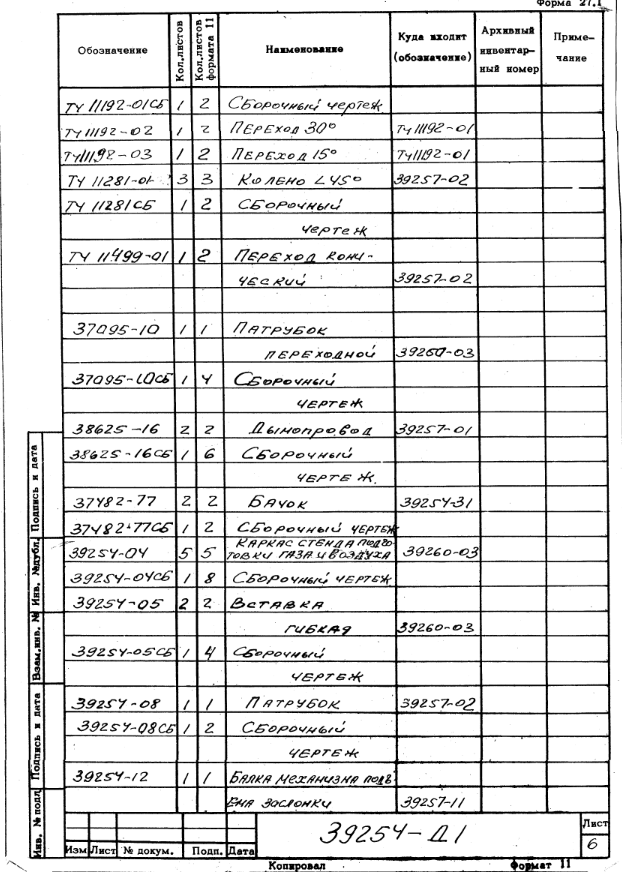 Форма 27.1
Обозначение Кол.листов Кол.листов формата 11 Наименование Куда входит (обозначение) Архивный инвентарный номер Примечание
ТУ 11192-01СБ 1 2 Сборочный чертеж
ТУ 11192-02 1 2 Переход 30° ТУ 11192-01
ТУ 11192-03 1 2 Переход 15° ТУ 11192-01
ТУ 11281-01 3 3 Колено L45° 39257-02
ТУ 11281СБ 1 2 Сборочный
чертеж
ТУ 11499-01 1 2 Переход кони-
ческий 39257-02
37095-10 1 1 Патрубок
переходной 39260-03
37095-10СБ 1 4 Сборочный
чертеж
38625-16 2 2 Дымопровод 39257-01
38625-16СБ 1 6 Сборочный
чертеж.
37482-77 2 2 Бачок 39254-31
37482-77СБ 1 2 Сборочный чертеж
39254-04 5 5 Каркас стенда подго
товки газа и воздуха 39260-03
39254-04СБ 1 8 Сборочный чертеж
39254-05 2 2 Вставка
гибкая 39260-03
39254-05СБ 1 4 Сборочный
чертеж
39254-08 1 1 Патрубок 39257-02
39254-08СБ 1 2 Сборочный
чертеж
39254-12 1 1 Балка механизма подъ
ема заслонки 39257-11
Инв. № подл. Подпись и дата Взам.инв. № Инв. №дубл. Подпись и дата
Изм Лист № докум. Подп. Дата
39254-Д1
Лист
6
Копировал Формат 11